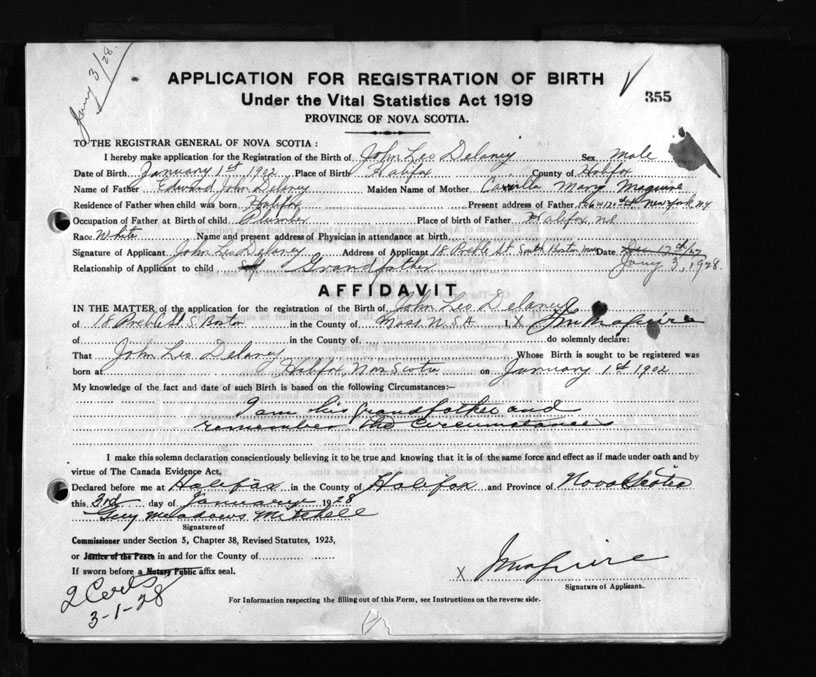 Jany 3/28.
APPLICATION FOR REGISTRATION OF BIRTH
Under the Vital Statistics Act 1919
355
PROVINCE OF NOVA SCOTIA.
TO THE REGISTRAR GENERAL OF NOVA SCOTIA:
I hereby make application for the Registration of the Birth of John Leo Delaney Sex Male
Date of Birth January 1st 1902 Place of Birth Halifax County of Halifax
Name of Father Edward John Delaney Maiden Name of Mother Camilla Mary Maguire
Residence of Father when child was born Halifax Present address of Father New York NY
Occupation of Father at Birth of child Plumber Place of birth of Father Halifax, N.S.
Race White Name and present address of Physician in attendance at birth
Signature of Applicant John Leo Delaney Address of Applicant 18 Preble St South Boston Mass Date Dec 17th/27
Jany 3, 1928.
Relationship of Applicant to child Self Grandfather
AFFIDAVIT
IN THE MATTER of the application for the registration of the Birth of John Leo Delaney
of 18 Preble St S. Boston in the County of Mass. U.S.A. I, Maguire
of in the County of do solemnly declare:
That John Leo Delaney Whose Birth is sought to be registered was
born at Halifax Nova Scotia on January 1st 1902
My knowledge of the fact and date of such Birth is based on the following Circumstances:—
I am his grandfather and
remember the circumstances
I make this solemn declaration conscientiously believing it to be true and knowing that it is of the same force and effect as if made under oath and by
virtue of The Canada Evidence Act.
Declared before me at Halifax in the County of Halifax and Province of Nova Scotia
this 3rd day of January 1928
Guy Meadows Mitchell
Signature of
Commissioner under Section 5, Chapter 38, Revised Statutes, 1923,
or Justice of the Peace in and for the County of
If sworn before a Notary Public affix seal.
X J Maguire
Signature of Applicant.
2 Certs
3-1-28
For Information respecting the filling out of this Form, see Instructions on the reverse side.